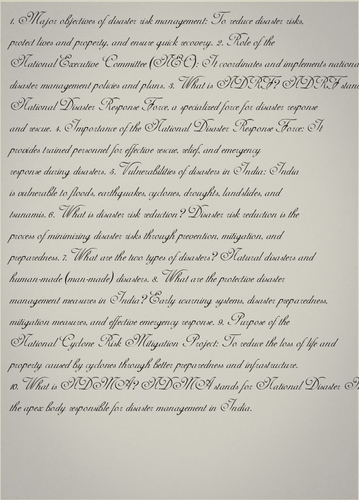 1. Major objectives of disaster risk management: To reduce disaster risks,
protect lives and property, and ensure quick recovery. 2. Role of the
National Executive Committee (NEC): It coordinates and implements
disaster management policies and plans. 3. What is NDRF? NDRF
National Disaster Response Force, a specialised force for disaster response
and rescue. 4. Importance of the National Disaster Response Force: It
provides trained personnel for effective rescue, relief, and emergency
response during disasters. 5. Vulnerabilities of disasters in India: India
is vulnerable to floods, earthquakes, cyclones, droughts, landslides, and
tsunamis. 6. What is disaster risk reduction? Disaster risk reduction is the
process of minimizing disaster risks through prevention, mitigation, and
preparedness. 7. What are the two types of disasters? Natural disasters and
human-made (man-made) disasters. 8. What are the protective disaster
management measures in India? Early warning systems, disaster preparedness,
mitigation measures, and effective emergency response. 9. Purpose of the
National Cyclone Risk Mitigation Project: To reduce the loss of life and
property caused by cyclones through better preparedness and infrastructure.
10. What is NDMA? NDMA stands for National Disaster
the apex body responsible for disaster management in India.